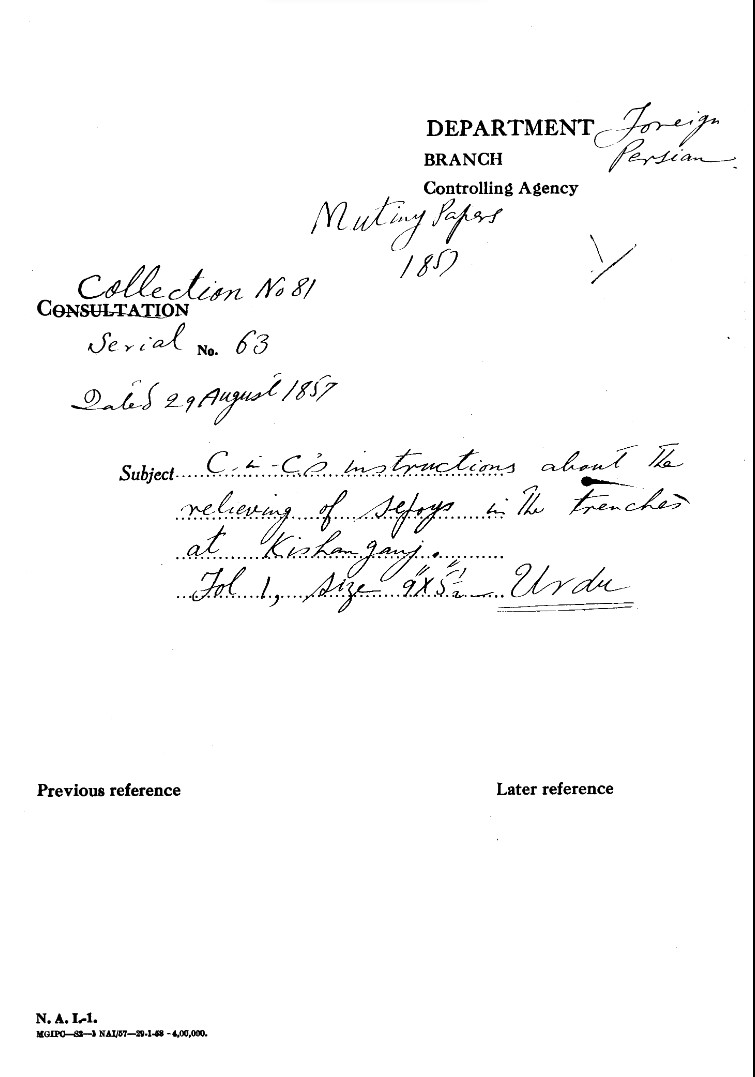 DEPARTMENT Foreign
BRANCH Persian
Controlling Agency
Mutiny Papers
1857
Collection No 81
CONSULTATION
Serial No. 63
Dated 29 August 1857
Subject C-in-C's instructions about the
relieving of sepoys in the trenches
at Kishanganj.
Fol 1, size 9"x5½" Urdu
Previous reference
Later reference
N. A. I.-1.
MGIPC—S2—1 NAI/57—29-1-58 - 4,00,000.